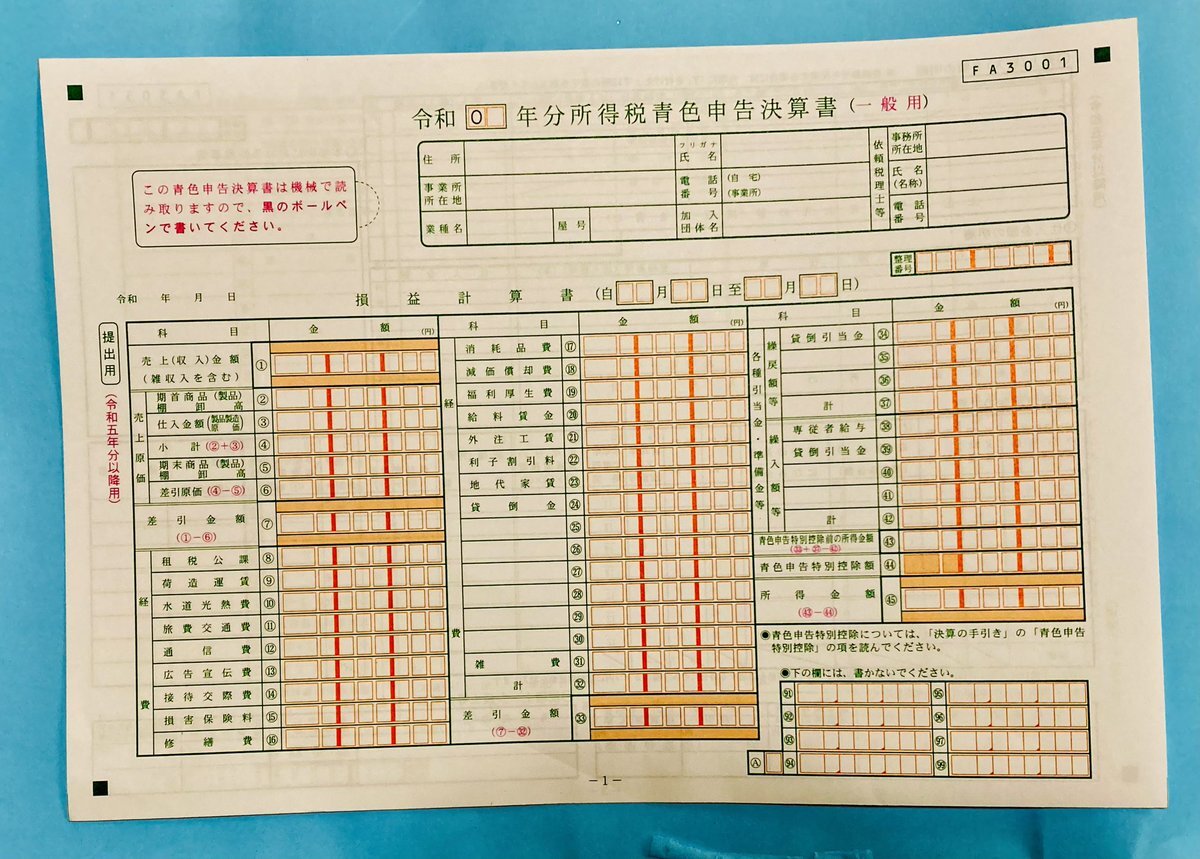 FA3001
令和 0 年分所得税青色申告決算書(一般用)
この青色申告決算書は機械で読
み取りますので、黒のボールペ
ンで書いてください。
住所
事業所
所在地
業種名
屋号
フリガナ
氏名
電話
番号
(自宅)
(事業所)
加入
団体名
依頼税理士等
事務所
所在地
氏名
(名称)
電話
番号
整理
番号
令和 年 月 日
損益計算書(自 月 日至 月 日)
提出用
(令和五年分以降用)
科目
金額
(円)
売上(収入)金額
(雑収入を含む)
①
売上原価
期首商品(製品)
棚卸高
②
仕入金額(製品製造原価)
③
小計(②+③)
④
期末商品(製品)
棚卸高
⑤
差引原価(④-⑤)
⑥
差引金額
(①-⑥)
⑦
経費
租税公課
⑧
荷造運賃
⑨
水道光熱費
⑩
旅費交通費
⑪
通信費
⑫
広告宣伝費
⑬
接待交際費
⑭
損害保険料
⑮
修繕費
⑯
科目
金額
(円)
経費
消耗品費
⑰
減価償却費
⑱
福利厚生費
⑲
給料賃金
⑳
外注工賃
㉑
利子割引料
㉒
地代家賃
㉓
貸倒金
㉔
㉕
㉖
㉗
㉘
㉙
㉚
雑費
㉛
計
㉜
差引金額
(⑦-㉜)
㉝
科目
金額
(円)
各種引当金・準備金等
繰戻額等
貸倒引当金
㉞
㉟
㊱
計
㊲
繰入額等
専従者給与
㊳
貸倒引当金
㊴
㊵
㊶
計
㊷
青色申告特別控除前の所得金額
(㉝+㊲-㊷)
㊸
青色申告特別控除額
㊹
所得金額
(㊸-㊹)
㊺
●青色申告特別控除については、「決算の手引き」の「青色申告
特別控除」の項を読んでください。
●下の欄には、書かないでください。
91
95
92
96
93
97
Ⓐ
94
99
-1-